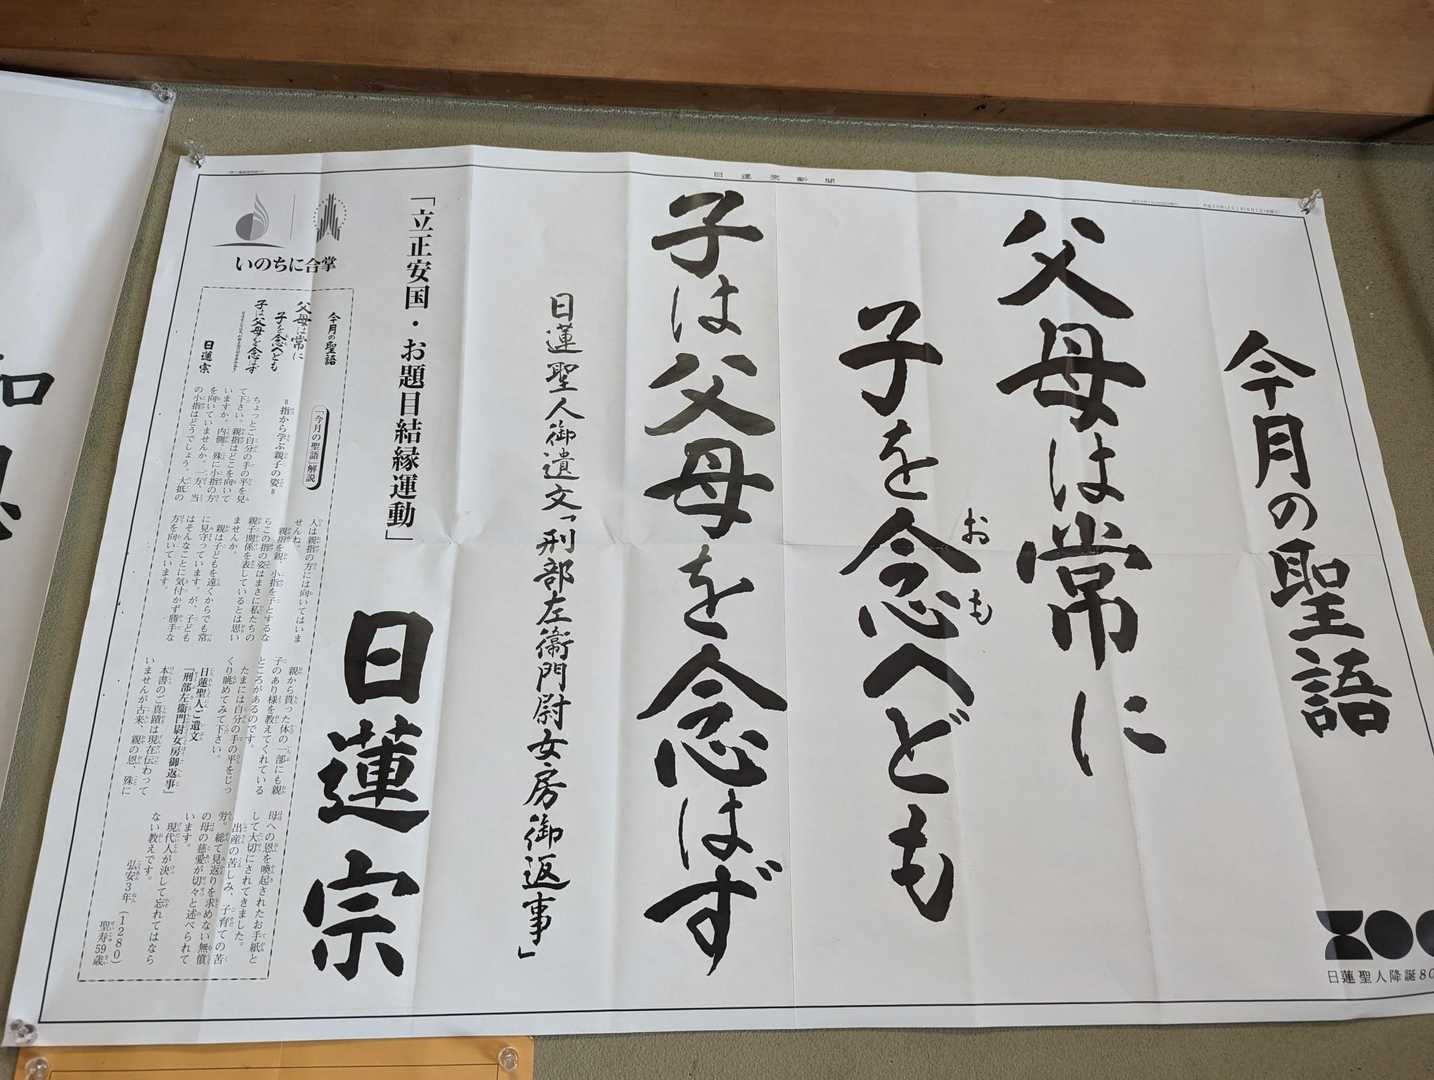 日蓮宗新聞
今月の聖語
父母は常に
子を念へども
おも
子は父母を念はず
日蓮聖人御遺文「刑部左衛門尉女房御返事」
「立正安国・お題目結縁運動」
日蓮宗
いのちに合掌
今月の聖語
父母は常に
子を念へども
子は父母を念はず
日蓮宗
「今月の聖語」解説
＝指から学ぶ親子の姿＝
ちょっとご自分の手の平を見
て下さい。親指はどこを向いて
いますか。内側、殊に小指の方
を向いていませんか。一方、当
の小指はどうでしょう。大抵の
人は親指の方には向いてはいま
せんね。
親指を親、小指を子とするな
らこの指の姿はまさに私たちの
親子関係を表しているとは思い
ませんか。
親は子どもを遠くからでも常
に見守っています。が、子ども
はそんなことに気付かず勝手な
方を向いています。
親から貰った体の一部にも親
子のあり様を教えてくれている
ところがあるのです。
たまには自分の手の平をじっ
くり眺めてみて下さい。
日蓮聖人ご遺文
『刑部左衛門尉女房御返事』
本書のご真蹟は現在伝わって
いませんが古来、親の恩、殊に
母への恩を喚起されたお手紙と
して大切にされてきました。
出産の苦しみ、子育ての苦
労。総て見返りを求めない無償
の母の慈愛が切々と述べられて
います。
現代人が決して忘れてはなら
ない教えです。
弘安3年（1280）
聖寿59歳
日蓮聖人降誕80